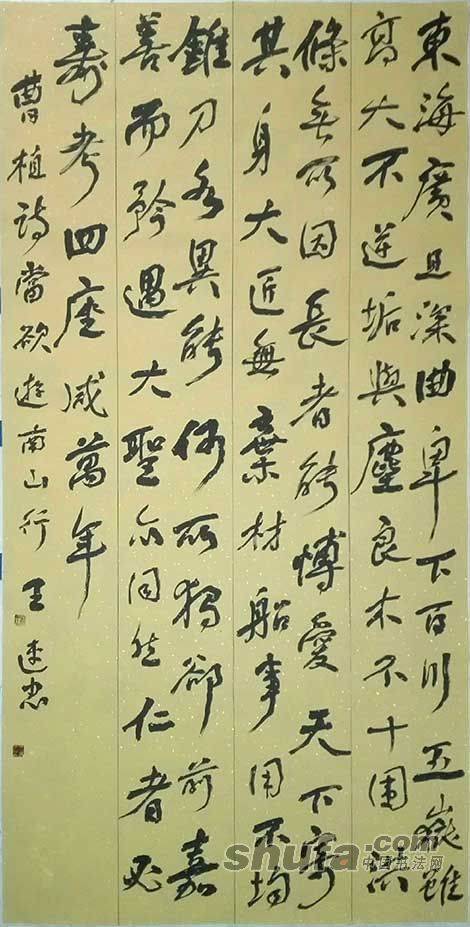 東海廣且深曲卑下百川五嶽雖
高大不逆垢與塵良木不十圍洪
條無所因長者能愽愛天下寄
其身大匠無棄材船事用不均
錐刀各異能何所獨郤前嘉
善而矜遇大聖亦同然仁者必
壽考四座咸萬年
曹植詩當欲遊南山行 王忠
shufa.com
中国书法网